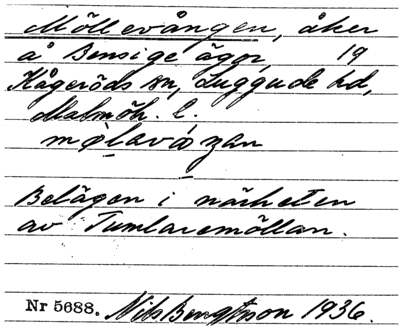 Möllevången, åker
å Bensige ägor, 19
Kågeröds sn, Luggude hd,
Malmöh. l.
Belägen i närheten
av Tumlaremöllan.
Nr 5688. Nils Bengtsson 1936.